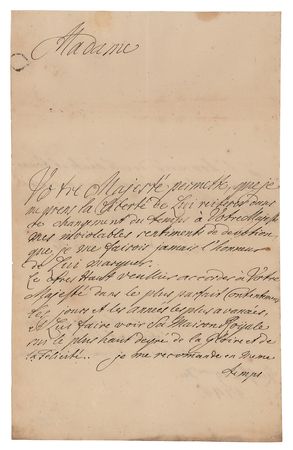 Madame
Votre Majesté permette, que je
prens la liberté de Lui
ce changement du temps à Votre Majesté
mes inviolables sentiments de devotion
que je ne jamais l'honneur
de Lui marquer.
Le tres Haut veuille accorder à Votre
Majesté dans le plus parfait Contentement
les jours et les années les plus avancées,
et Lui faire voir Sa Maison Royale
sur le plus haut degré de la Gloire et de
la Felicité. je me recomande en meme
temps